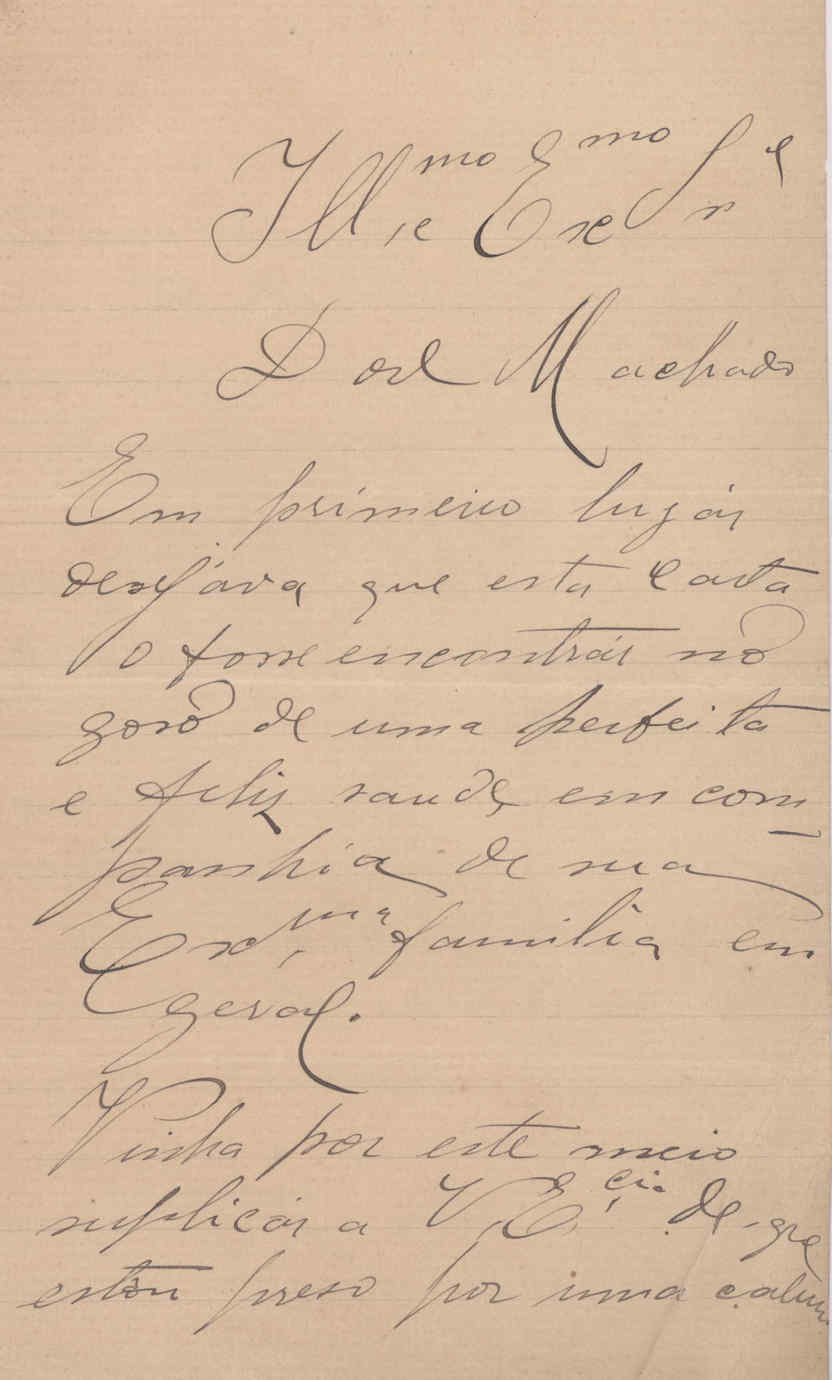 Illmo e Exmo Snr
Dor Machado
Em primeiro lugár
desejáva que esta Carta
o fosse encontrár no
goso de uma perfeita
e feliz saude, em com
panhia de sua
Exma familia em
geral.
Vinha por este meio
suplicár a V. Ecia. de-que
estou preso por uma calum